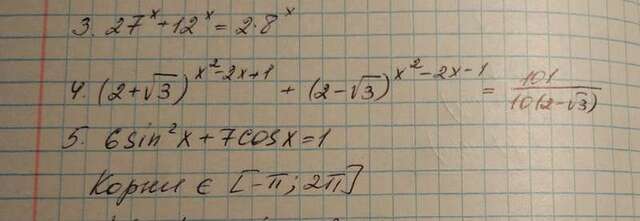 3. 27^x + 12^x = 2·8^x
4. (2+√3)^(x²-2x+1) + (2-√3)^(x²-2x-1) = 101/(10(2-√3))
5. 6sin²x + 7cosx = 1
Корни ∈ [-π; 2π]